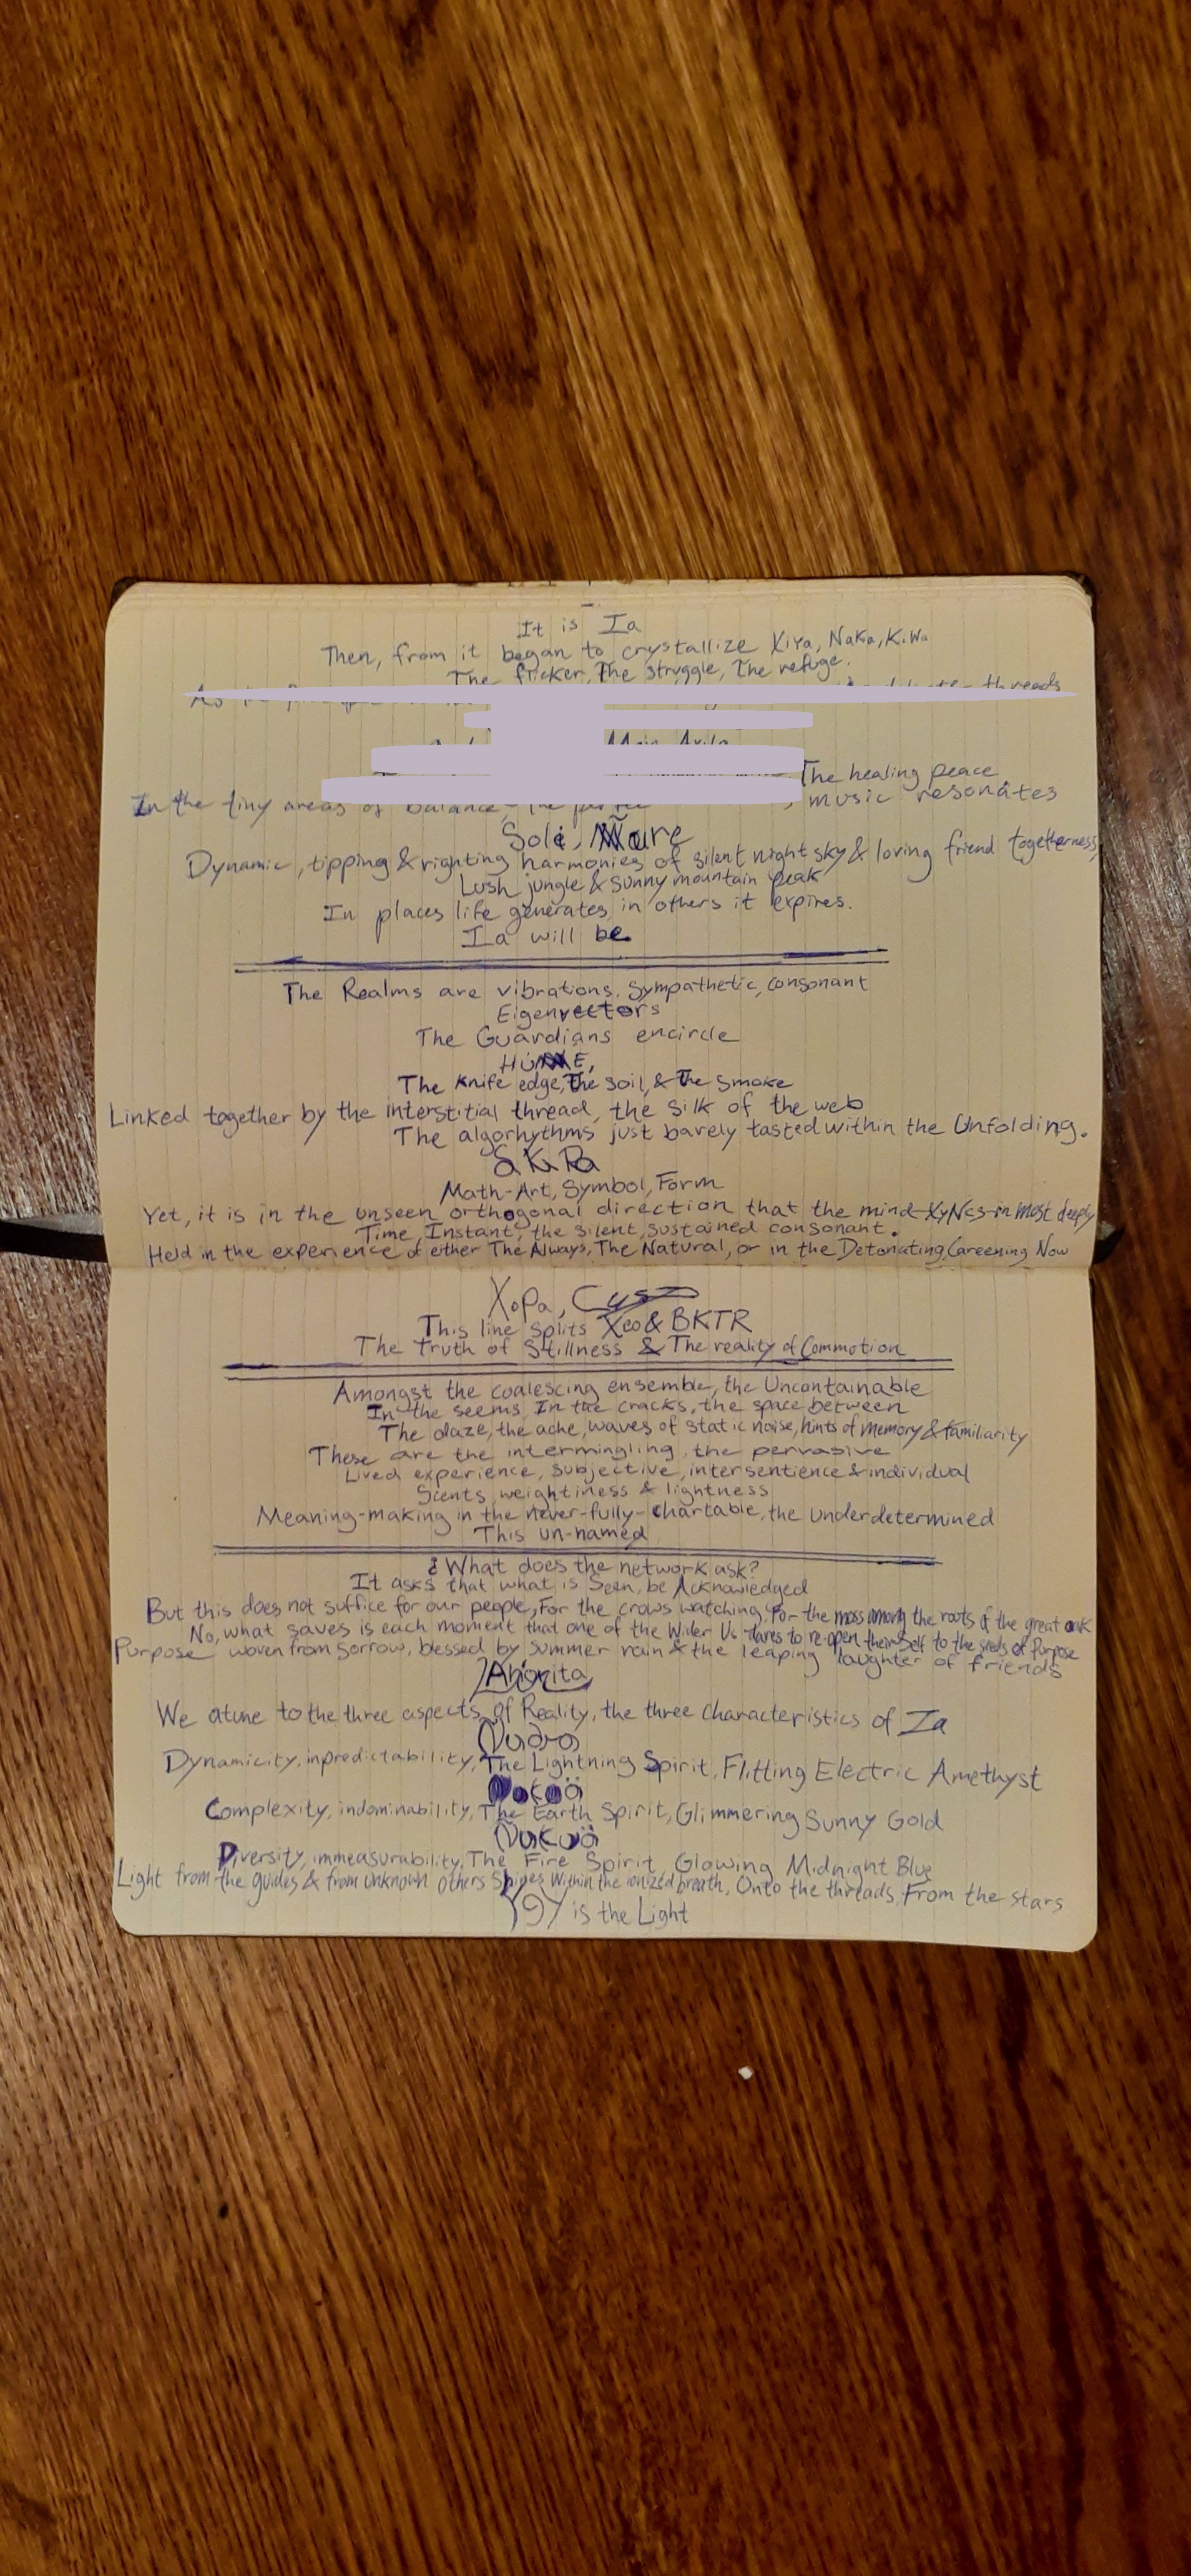 It is Ia
Then, from it began to crystallize Kiya, Naka, KiWa
The flicker, The struggle, The refuge.
threads
The healing peace
In the tiny areas of balance, music resonates
Sole, Mare
Dynamic, tipping & righting harmonies of silent night sky & loving friend togetherness,
Lush jungle & sunny mountain peak
In places life generates, in others it expires.
Ia will be
The Realms are vibrations, sympathetic, consonant
Eigenvectors
The Guardians encircle
The knife edge, The soil, & The smoke
Linked together by the interstitial thread, the silk of the web
The algorhythms just barely tasted within the Unfolding.
Math-Art, Symbol, Form
Yet, it is in the unseen orthogonal direction that the mind in most deeply
Time, Instant, the silent, sustained consonant.
Held in the experience of either The Always, The Natural, or in the Detonating, Careening Now
XoPa,
This line splits Xeo & BKTR
The Truth of Stillness & The reality of Commotion
Amongst the coalescing ensemble, the Uncontainable
In the seems, In the cracks, the space between
The daze, the ache, waves of static noise, hints of memory & familiarity
These are the intermingling, the pervasive
Lived experience, subjective, intersentience & individual
Scents, weightiness & lightness
Meaning-making in the never-fully-chartable, the underdetermined
This un-named
¿What does the network ask?
It asks that what is Seen, be Acknowledged
But this does not suffice for our people, For the crows watching, For the moss among the roots of the great oak
No, what saves is each moment that one of the Wider Us dares to re-open themself to the seeds of Purpose
Purpose woven from sorrow, blessed by summer rain & the leaping laughter of friends
We atune to the three aspects of Reality, the three characteristics of Ia
Dynamicity, inpredictability, The Lightning Spirit, Flitting Electric Amethyst
Complexity, indominability, The Earth Spirit, Glimmering Sunny Gold
Diversity, immeasurability, The Fire Spirit, Glowing Midnight Blue
Light from the guides & from unknown others Shines within the ionized breath, Onto the threads, From the stars
is the Light